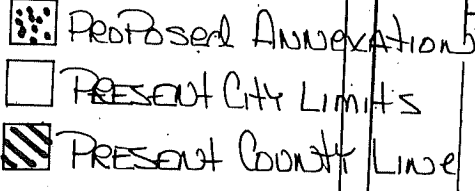 PROPOSEd ANNEXATIONS
PRESENT CITY LIMITS
PRESENT COUNTY LINE